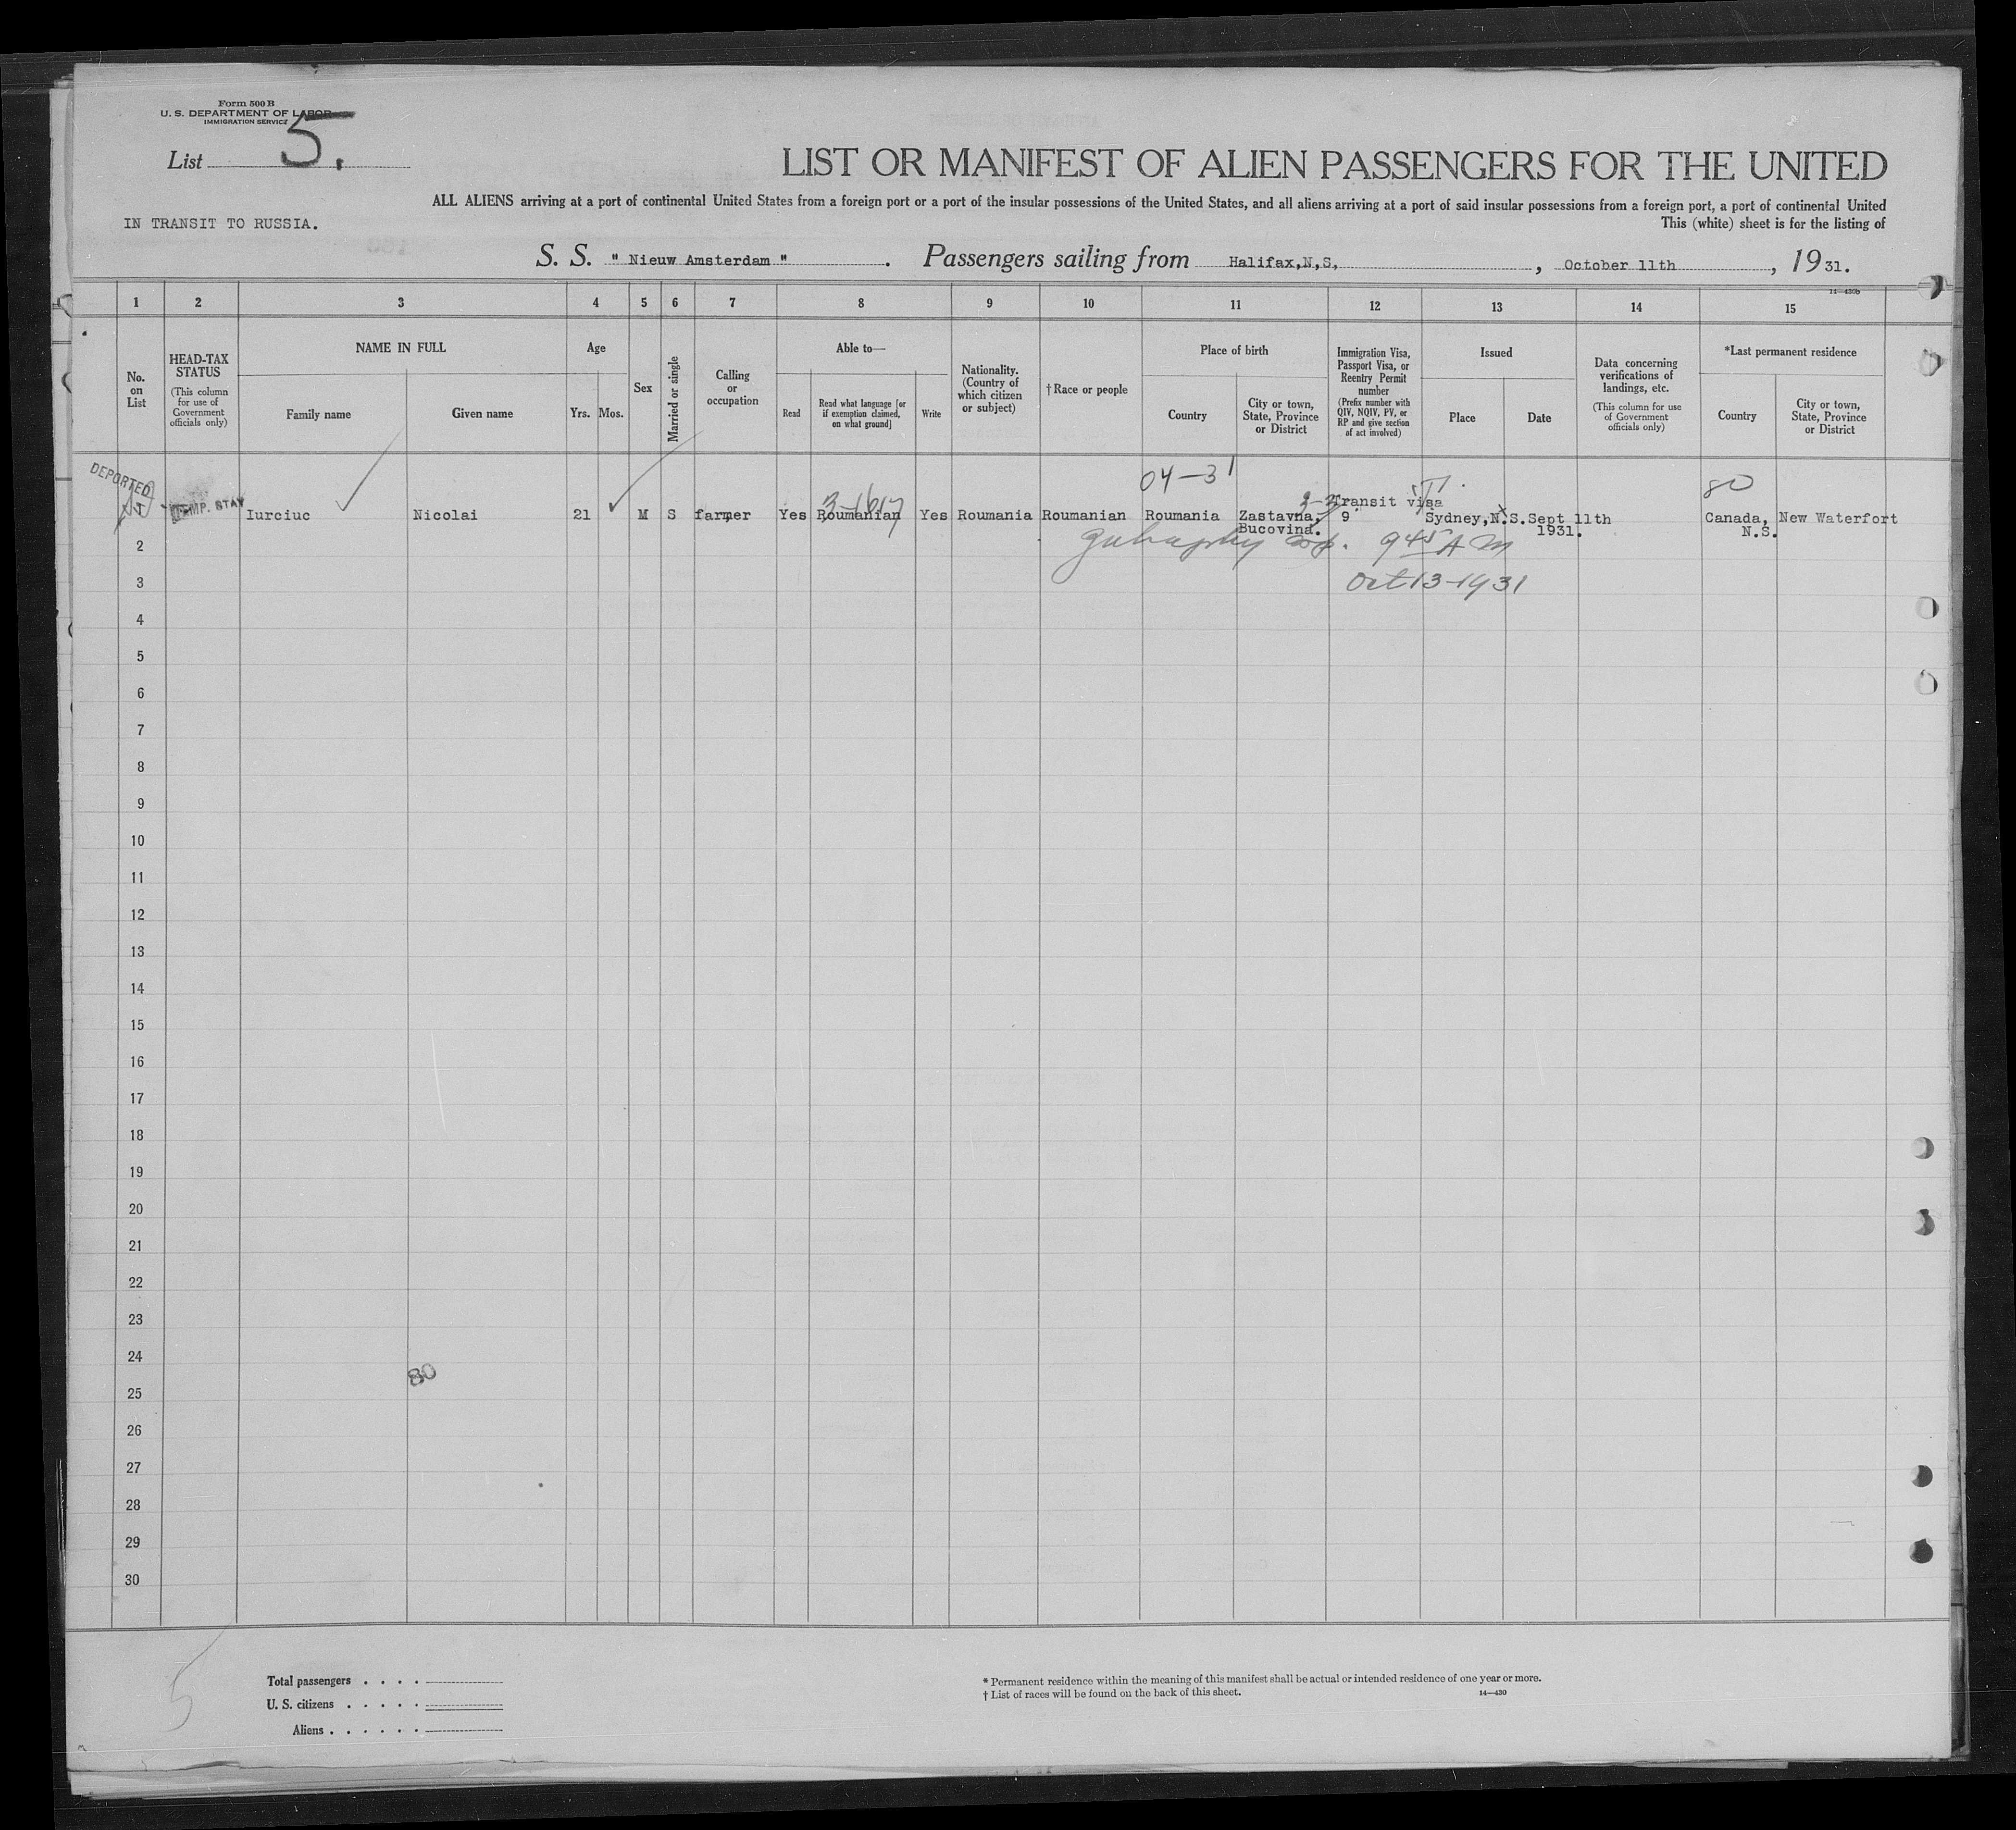 Form 500 B
U. S. DEPARTMENT OF LABOR
IMMIGRATION SERVICE
List 5.
LIST OR MANIFEST OF ALIEN PASSENGERS FOR THE UNITED
ALL ALIENS arriving at a port of continental United States from a foreign port or a port of the insular possessions of the United States, and all aliens arriving at a port of said insular possessions from a foreign port, a port of continental United
IN TRANSIT TO RUSSIA.
This (white) sheet is for the listing of
S. S. " Nieuw Amsterdam " . Passengers sailing from Halifax,N,S, , October 11th , 1931.
14—430b
1 2 3 4 5 6 7 8 9 10 11 12 13 14 15
No. on List
HEAD-TAX STATUS
(This column for use of Government officials only)
NAME IN FULL
Family name
Given name
Age
Yrs. Mos.
Sex
Married or single
Calling or occupation
Able to—
Read
Read what language [or if exemption claimed, on what ground]
Write
Nationality. (Country of which citizen or subject)
†Race or people
Place of birth
Country
City or town, State, Province or District
Immigration Visa, Passport Visa, or Reentry Permit number
(Prefix number with QIV, NQIV, PV, or RP and give section of act involved)
Issued
Place
Date
Data concerning verifications of landings, etc.
(This column for use of Government officials only)
*Last permanent residence
Country
City or town, State, Province or District
DEPORTED
04-31
80
TEMP. STAY
Transit visa
1 Iurciuc Nicolai 21 M S farmer Yes Roumanian Yes Roumania Roumanian Roumania Zastavna, 9 Sydney,N.S. Sept 11th Canada, New Waterfort
Bucovina. 1931. N.S.
2 9 45 A M
3 Oct 13-1931
4
5
6
7
8
9
10
11
12
13
14
15
16
17
18
19
20
21
22
23
24
80
25
26
27
28
29
30
5
Total passengers . . . .
U. S. citizens . . . . .
Aliens . . . . . .
* Permanent residence within the meaning of this manifest shall be actual or intended residence of one year or more.
† List of races will be found on the back of this sheet.
14—430